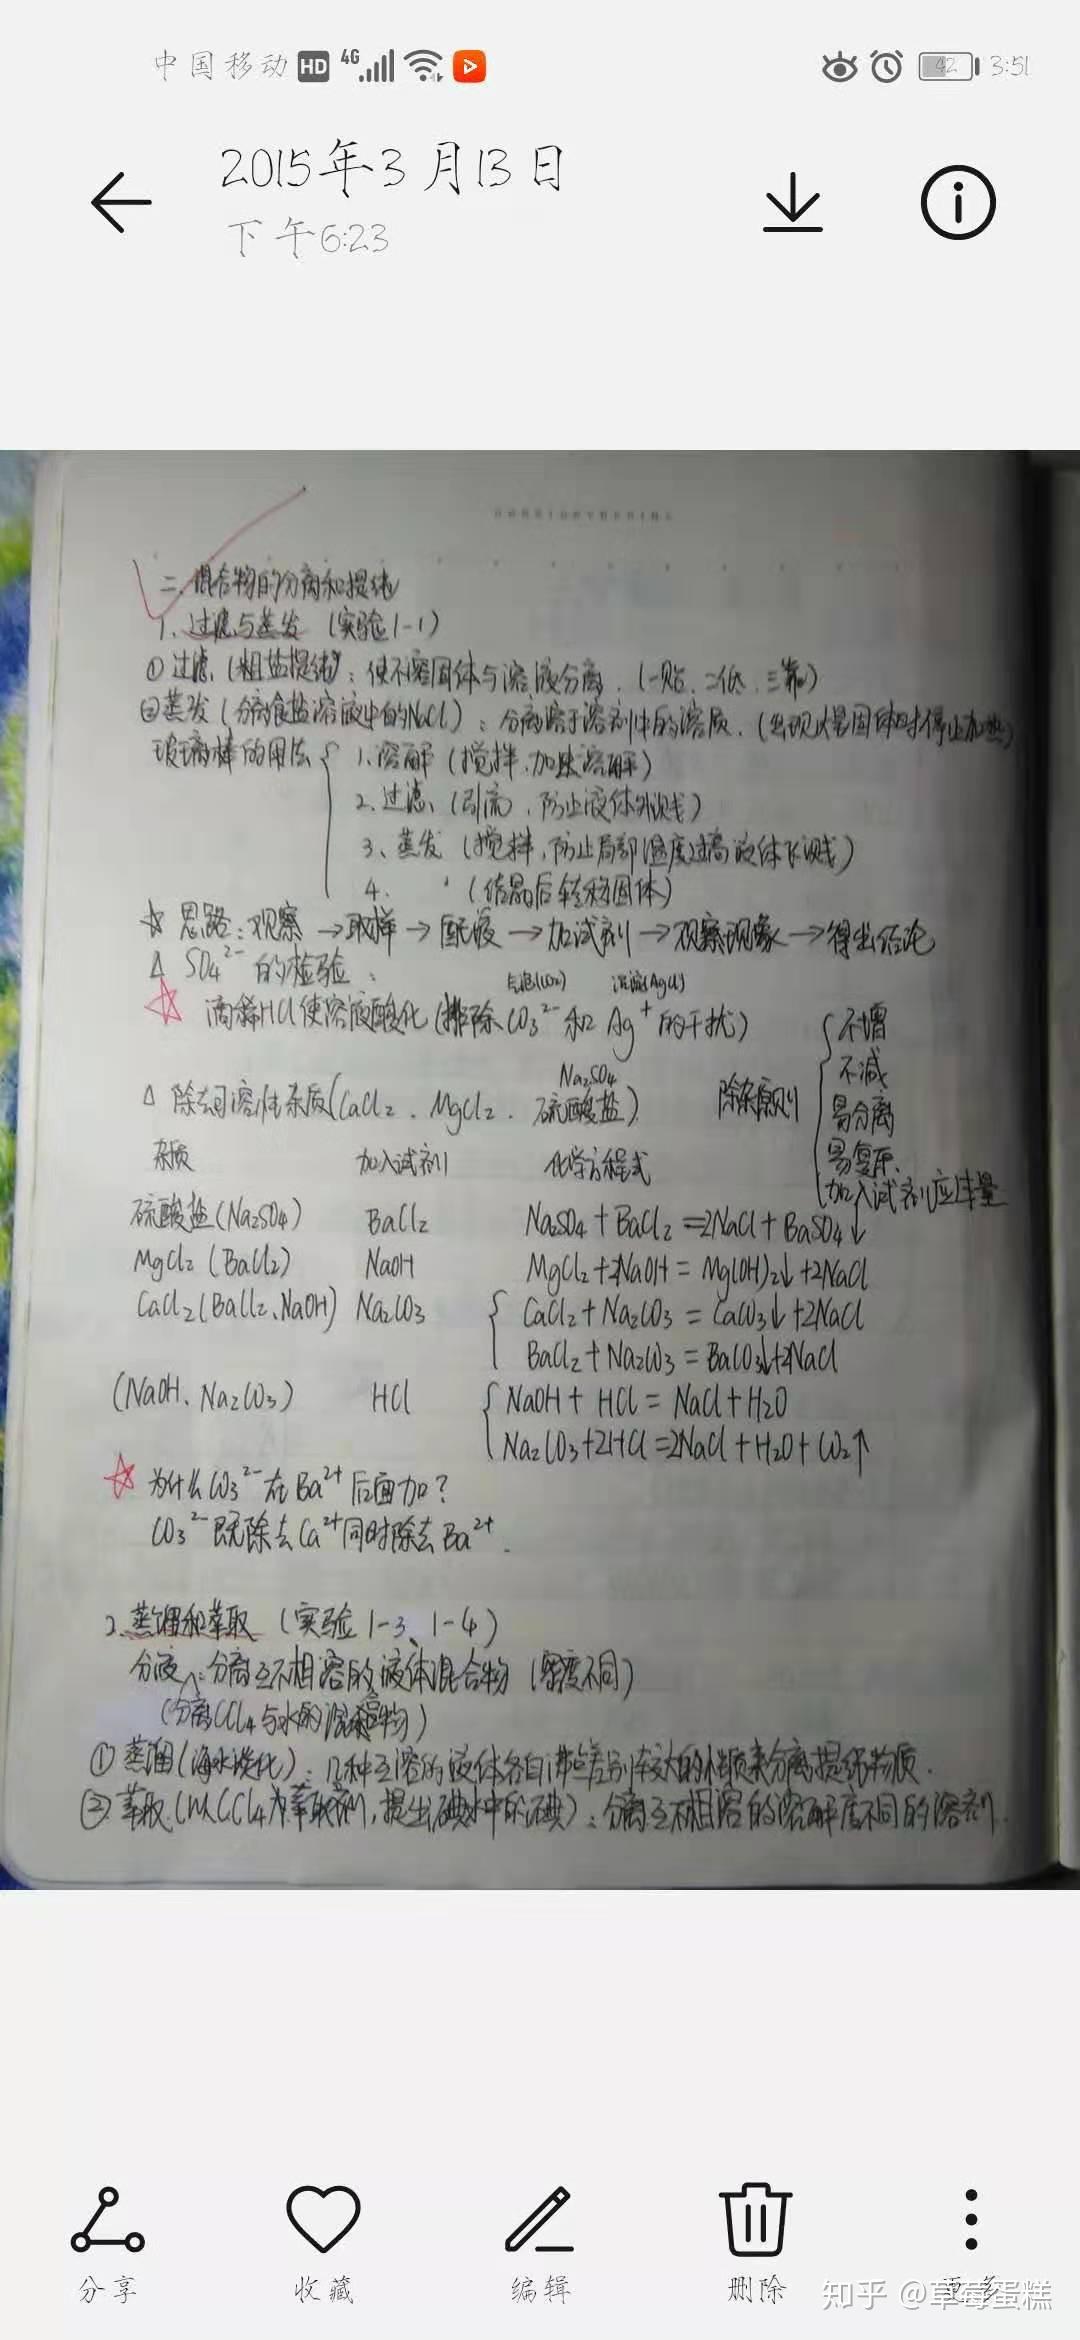 中国移动 HD 4G 42 3:51
2015年3月13日
下午6:23
二、混合物的分离和提纯
1、过滤与蒸发 (实验1-1)
①过滤 (粗盐提纯): 使不溶固体与溶液分离. (一贴、二低、三靠)
②蒸发 (分离食盐溶液中的NaCl): 分离溶于溶剂中的溶质. (出现大量固体时停止加热)
玻璃棒的用法 { 1.溶解 (搅拌.加速溶解)
2.过滤 (引流、防止液体外溅)
3、蒸发 (搅拌,防止局部温度过高液体飞溅)
4. (结晶后转移固体)
☆ 思路:观察→取样→配液→加试剂→观察现象→得出结论
△ SO₄²⁻的检验:
气泡(CO₂) 沉淀(AgCl)
☆ 滴稀HCl使溶液酸化(排除CO₃²⁻和Ag⁺的干扰)
△ 除去可溶性杂质(CaCl₂、MgCl₂、硫酸盐)
Na₂SO₄
除杂原则 { 不增
不减
易分离
易复原
加入试剂应过量
杂质 加入试剂 化学方程式
硫酸盐(Na₂SO₄) BaCl₂ Na₂SO₄+BaCl₂=2NaCl+BaSO₄↓
MgCl₂(BaCl₂) NaOH MgCl₂+2NaOH=Mg(OH)₂↓+2NaCl
CaCl₂(BaCl₂、NaOH) Na₂CO₃ { CaCl₂+Na₂CO₃=CaCO₃↓+2NaCl
BaCl₂+Na₂CO₃=BaCO₃↓+2NaCl
(NaOH、Na₂CO₃) HCl { NaOH+HCl=NaCl+H₂O
Na₂CO₃+2HCl=2NaCl+H₂O+CO₂↑
☆ 为什么CO₃²⁻在Ba²⁺后面加?
CO₃²⁻既除去Ca²⁺同时除去Ba²⁺.
2.蒸馏和萃取 (实验1-3、1-4)
分液:分离互不相溶的液体混合物 (密度不同)
(分离CCl₄与水的混合物)
①蒸馏(海水淡化):几种互溶的液体各自沸点差别较大的性质来分离提纯物质.
②萃取(以CCl₄为萃取剂,提出碘水中的碘):分离互不相溶的溶解度不同的溶剂.
分享 收藏 编辑 删除 更多
知乎 @草莓蛋糕